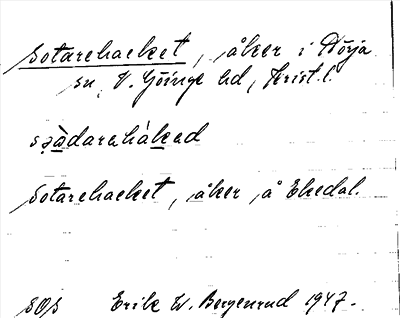 Sotarehacket, åker i Norja
sn, V. Göinge hd, Krist. l.
sọ̀darahàkad
Sotarehacket, åker å Ekedal.
SOS Erik W. Bergenrud 1947.